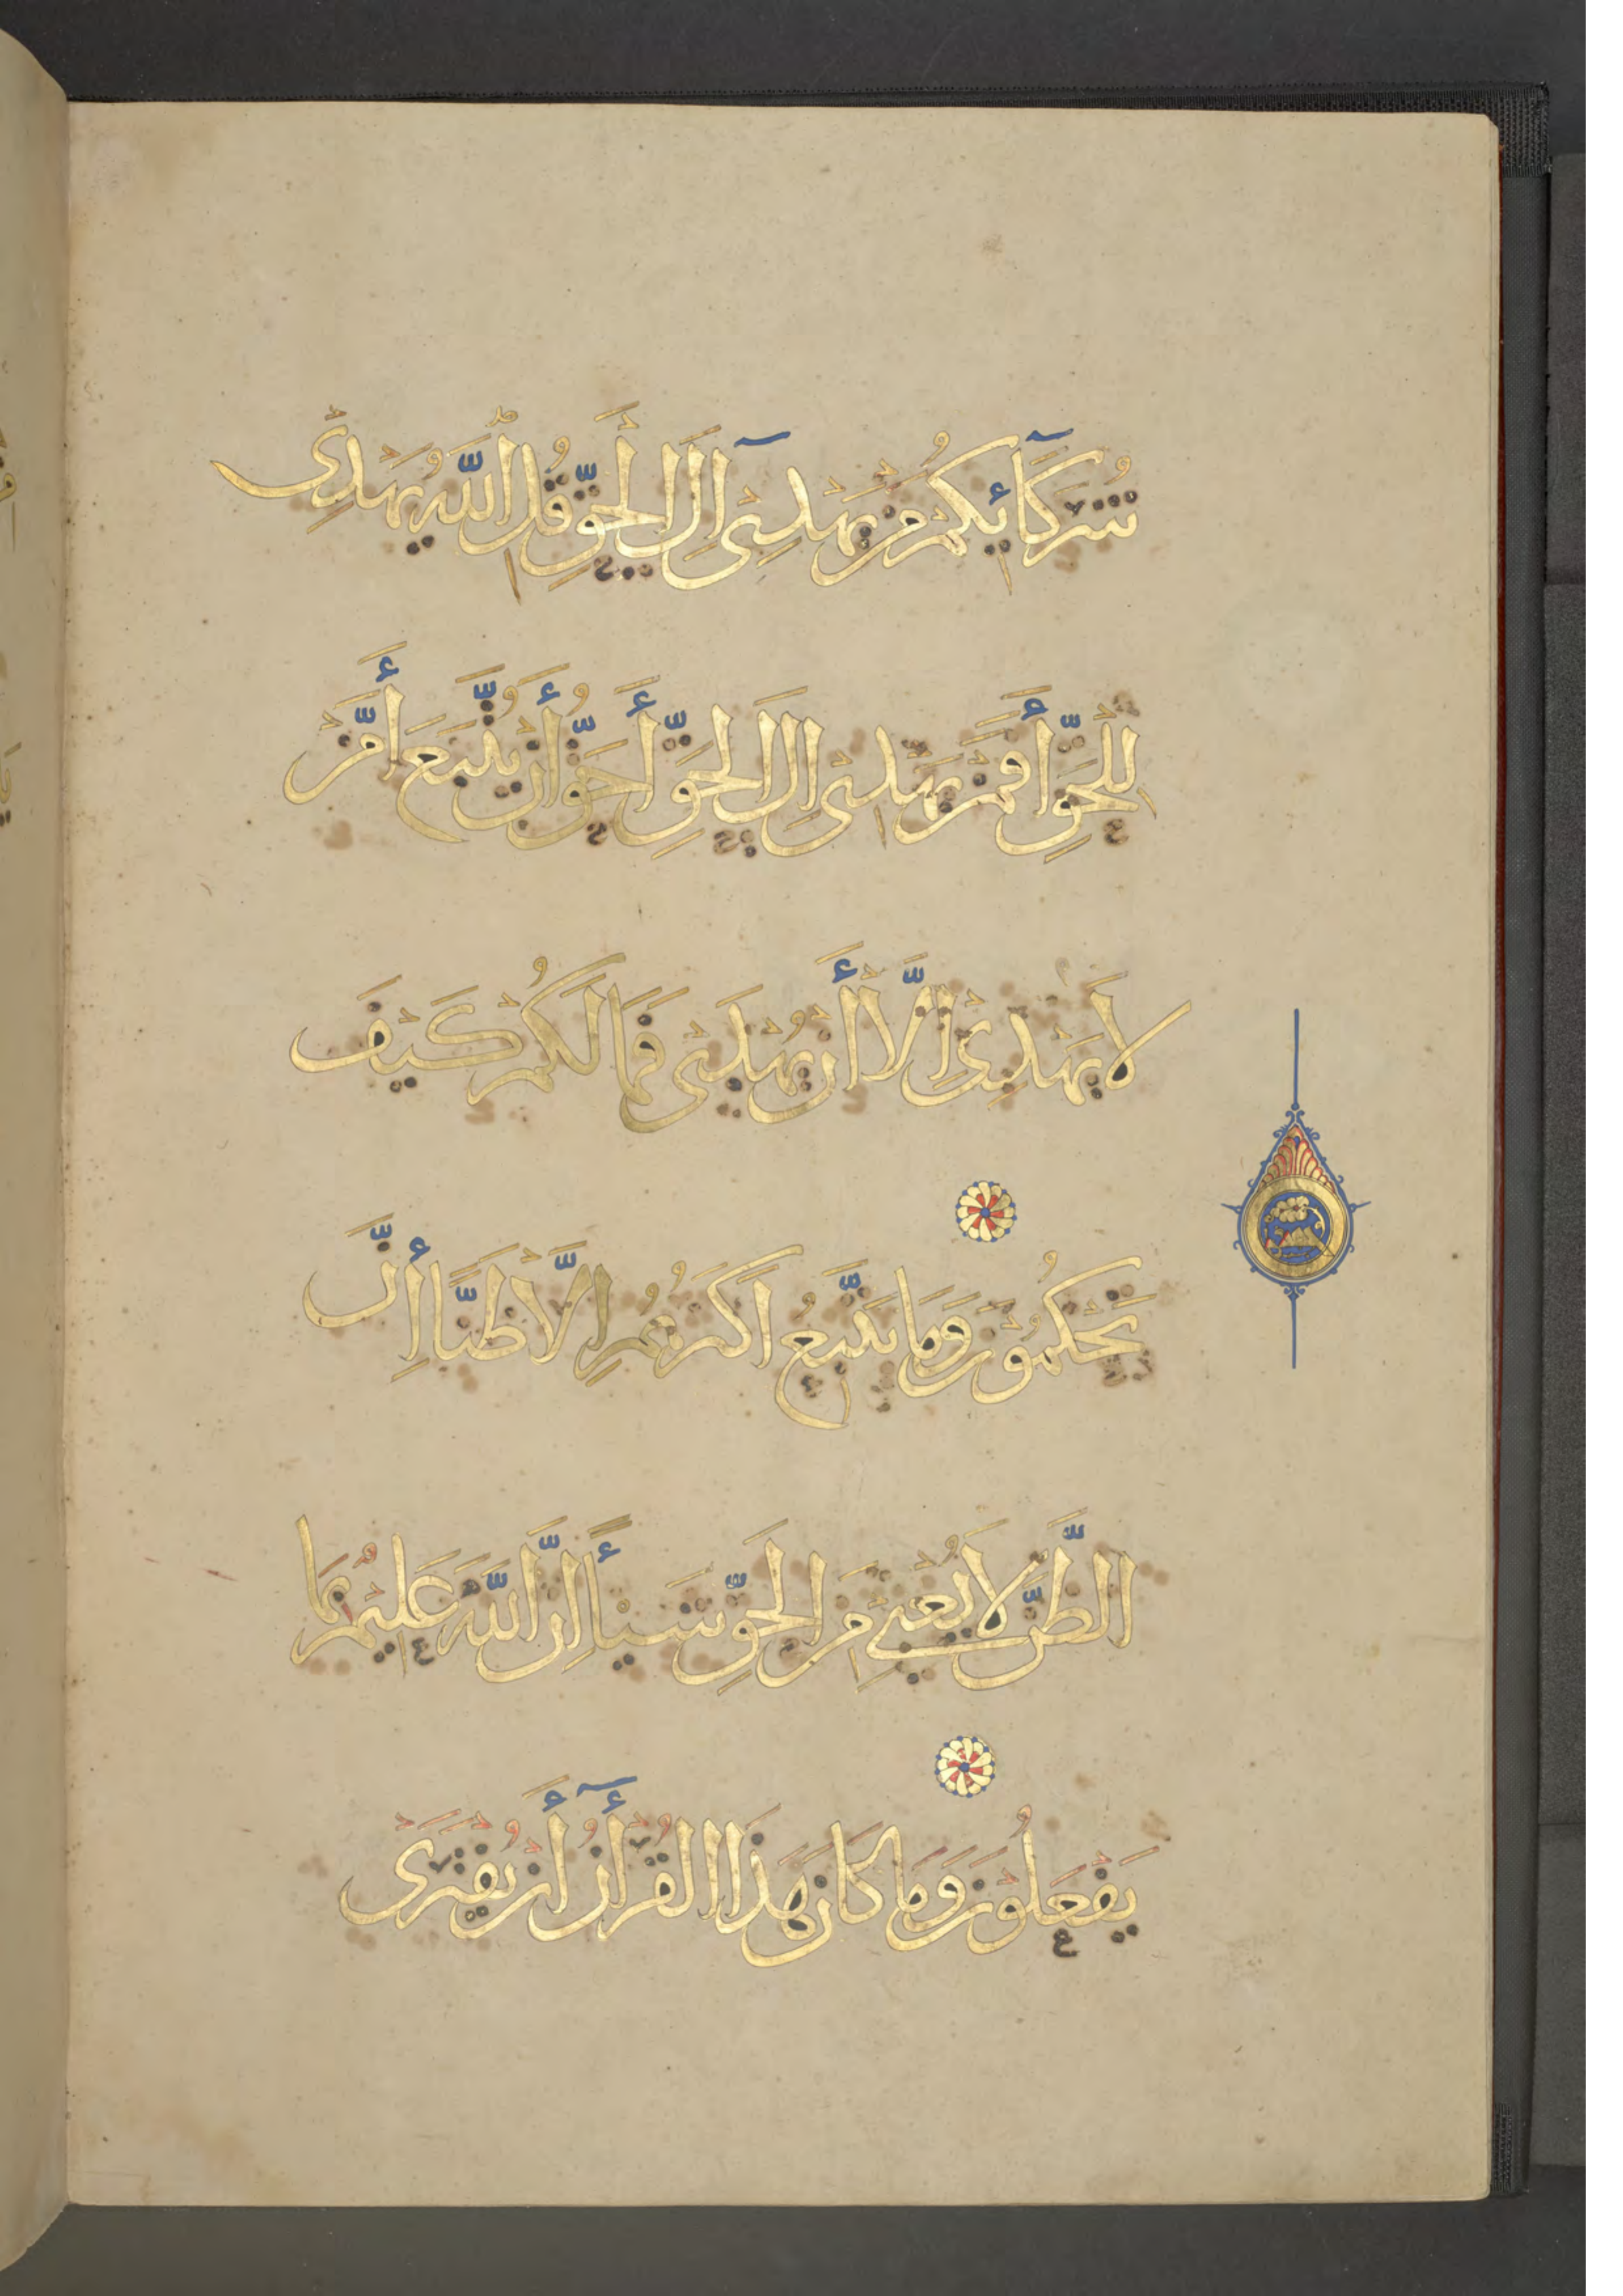 شُرَكَآئِكُمْ مَنْ يَهْدِىٓ اِلَى الْحَقِّ قُلِ اللّٰهُ يَهْدِىْ
لِلْحَقِّ أَفَمَنْ يَهْدِىْ اِلَى الْحَقِّ أَحَقُّ أَنْ يُتَّبَعَ أَمَّنْ
لَا يَهْدِىْ اِلَّا أَنْ يُهْدَىْ فَمَا لَكُمْ كَيْفَ
تَحْكُمُوْنَ وَمَا يَتَّبِعُ اَكْثَرُهُمْ اِلَّا ظَنًّا أِنَّ
الظَّنَّ لَا يُغْنِىْ مِنَ الْحَقِّ شَيْأً اِنَّ اللّٰهَ عَلِيْمٌ بِمَا
يَفْعَلُوْنَ وَمَا كَانَ هٰذَا الْقُرْأٰنُ أَنْ يُفْتَرَىْ